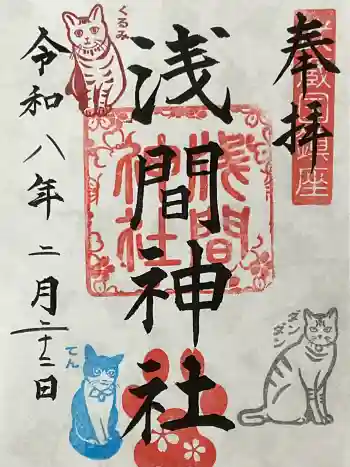 奉拝
武蔵國鎮座
浅間神社
浅間
神社
令和八年二月二十二日
くるみ
てん
ダンダン